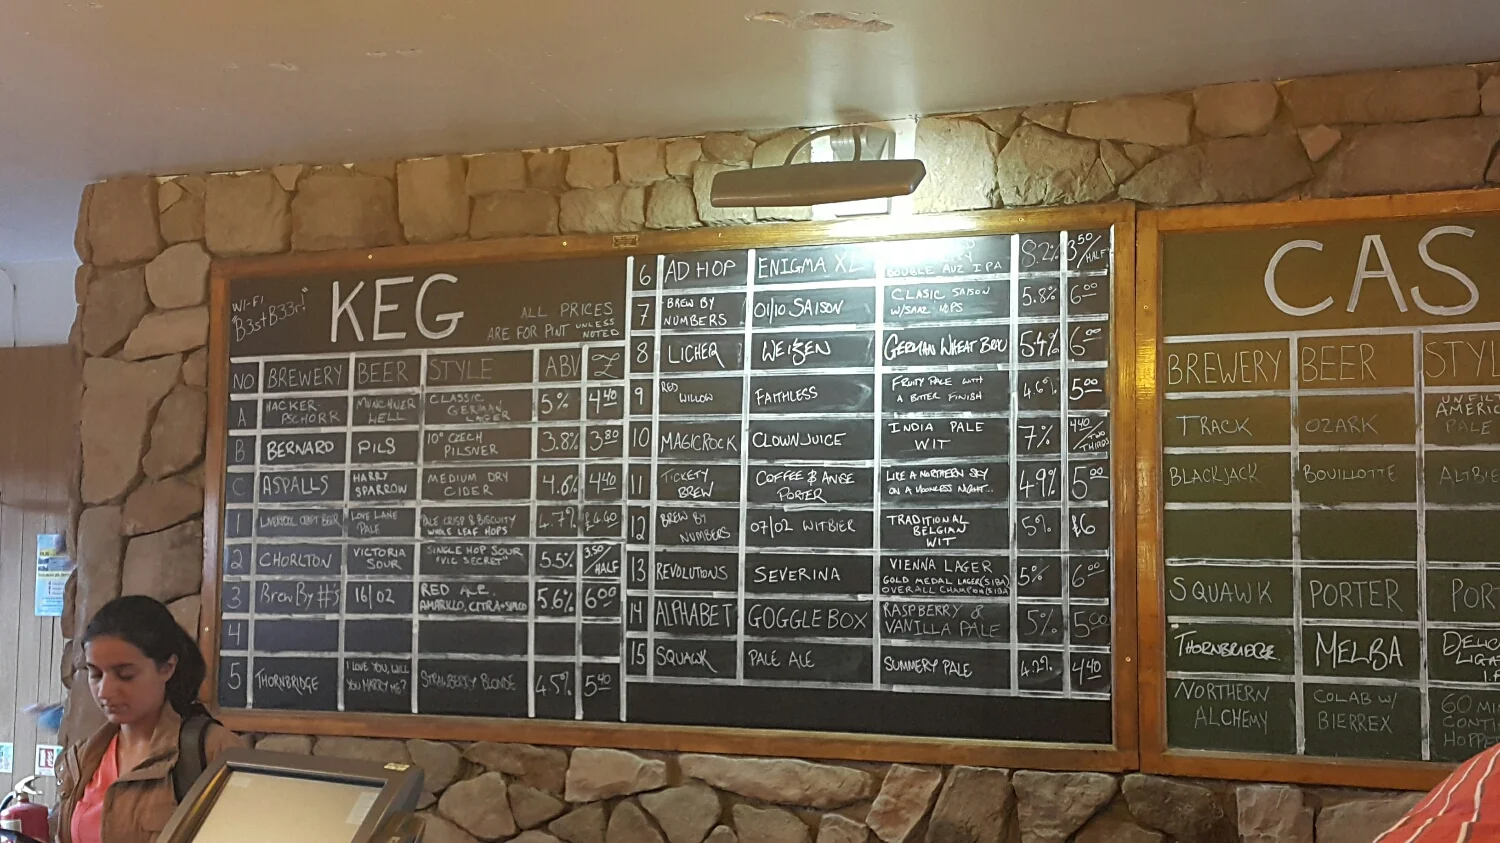 WI-FI
"B3stB33r!"
KEG
ALL PRICES
ARE FOR PINT UNLESS
NOTED
NO BREWERY BEER STYLE ABV £
A HACKER-PSCHORR MUNCHNER HELL CLASSIC GERMAN LAGER 5% 4.40
B BERNARD PILS 10° CZECH PILSNER 3.8% 3.80
C ASPALLS HARRY SPARROW MEDIUM DRY CIDER 4.6% 4.40
1 LIVERPOOL CRAFT BEER LOVE LANE PALE PALE CRISP & BISCUITY WHOLE LEAF HOPS 4.7% £4.60
2 CHORLTON VICTORIA SOUR SINGLE HOP SOUR "VIC SECRET" 5.5% 3.50/HALF
3 Brew By #'s 16/02 RED ALE. AMARILLO, CITRA+SIMCO 5.6% 6.00
4
5 THORNBRIDGE I LOVE YOU, WILL YOU MARRY ME? STRAWBERRY BLONDE 4.5% 5.40
6 AD HOP ENIGMA XL DOUBLE AUZ IPA 8.2% 3.50/HALF
7 BREW BY NUMBERS 01/10 SAISON CLASIC SAISON W/SAAZ HOPS 5.8% 6.00
8 LICHER WEIZEN GERMAN WHEAT BREW 5.4% 6.00
9 RED WILLOW FAITHLESS FRUITY PALE WITH A BITTER FINISH 4.6% 5.00
10 MAGICROCK CLOWNJUICE INDIA PALE WIT 7% 4.40/TWO THIRDS
11 TICKETY BREW COFFEE & ANISE PORTER LIKE A NORTHERN SKY ON A MOONLESS NIGHT... 4.9% 5.00
12 BREW BY NUMBERS 07/02 WITBIER TRADITIONAL BELGIAN WIT 5% £6
13 REVOLUTIONS SEVERINA VIENNA LAGER GOLD MEDAL LAGER(SIBA) OVERALL CHAMPION(SIBA) 5% 6.00
14 ALPHABET GOGGLEBOX RASPBERRY & VANILLA PALE 5% 5.00
15 SQUAWK PALE ALE SUMMERY PALE 4.2% 4.40
CAS
BREWERY BEER STYL
TRACK OZARK UNFILT AMERIC PALE
BLACKJACK BOUILLOTTE ALTBIE
SQUAWK PORTER POR
THORNBRIDGE MELBA DELIC LIGH I.P
NORTHERN ALCHEMY COLAB W/ BIERREX 60 MIN CONTI HOPPE